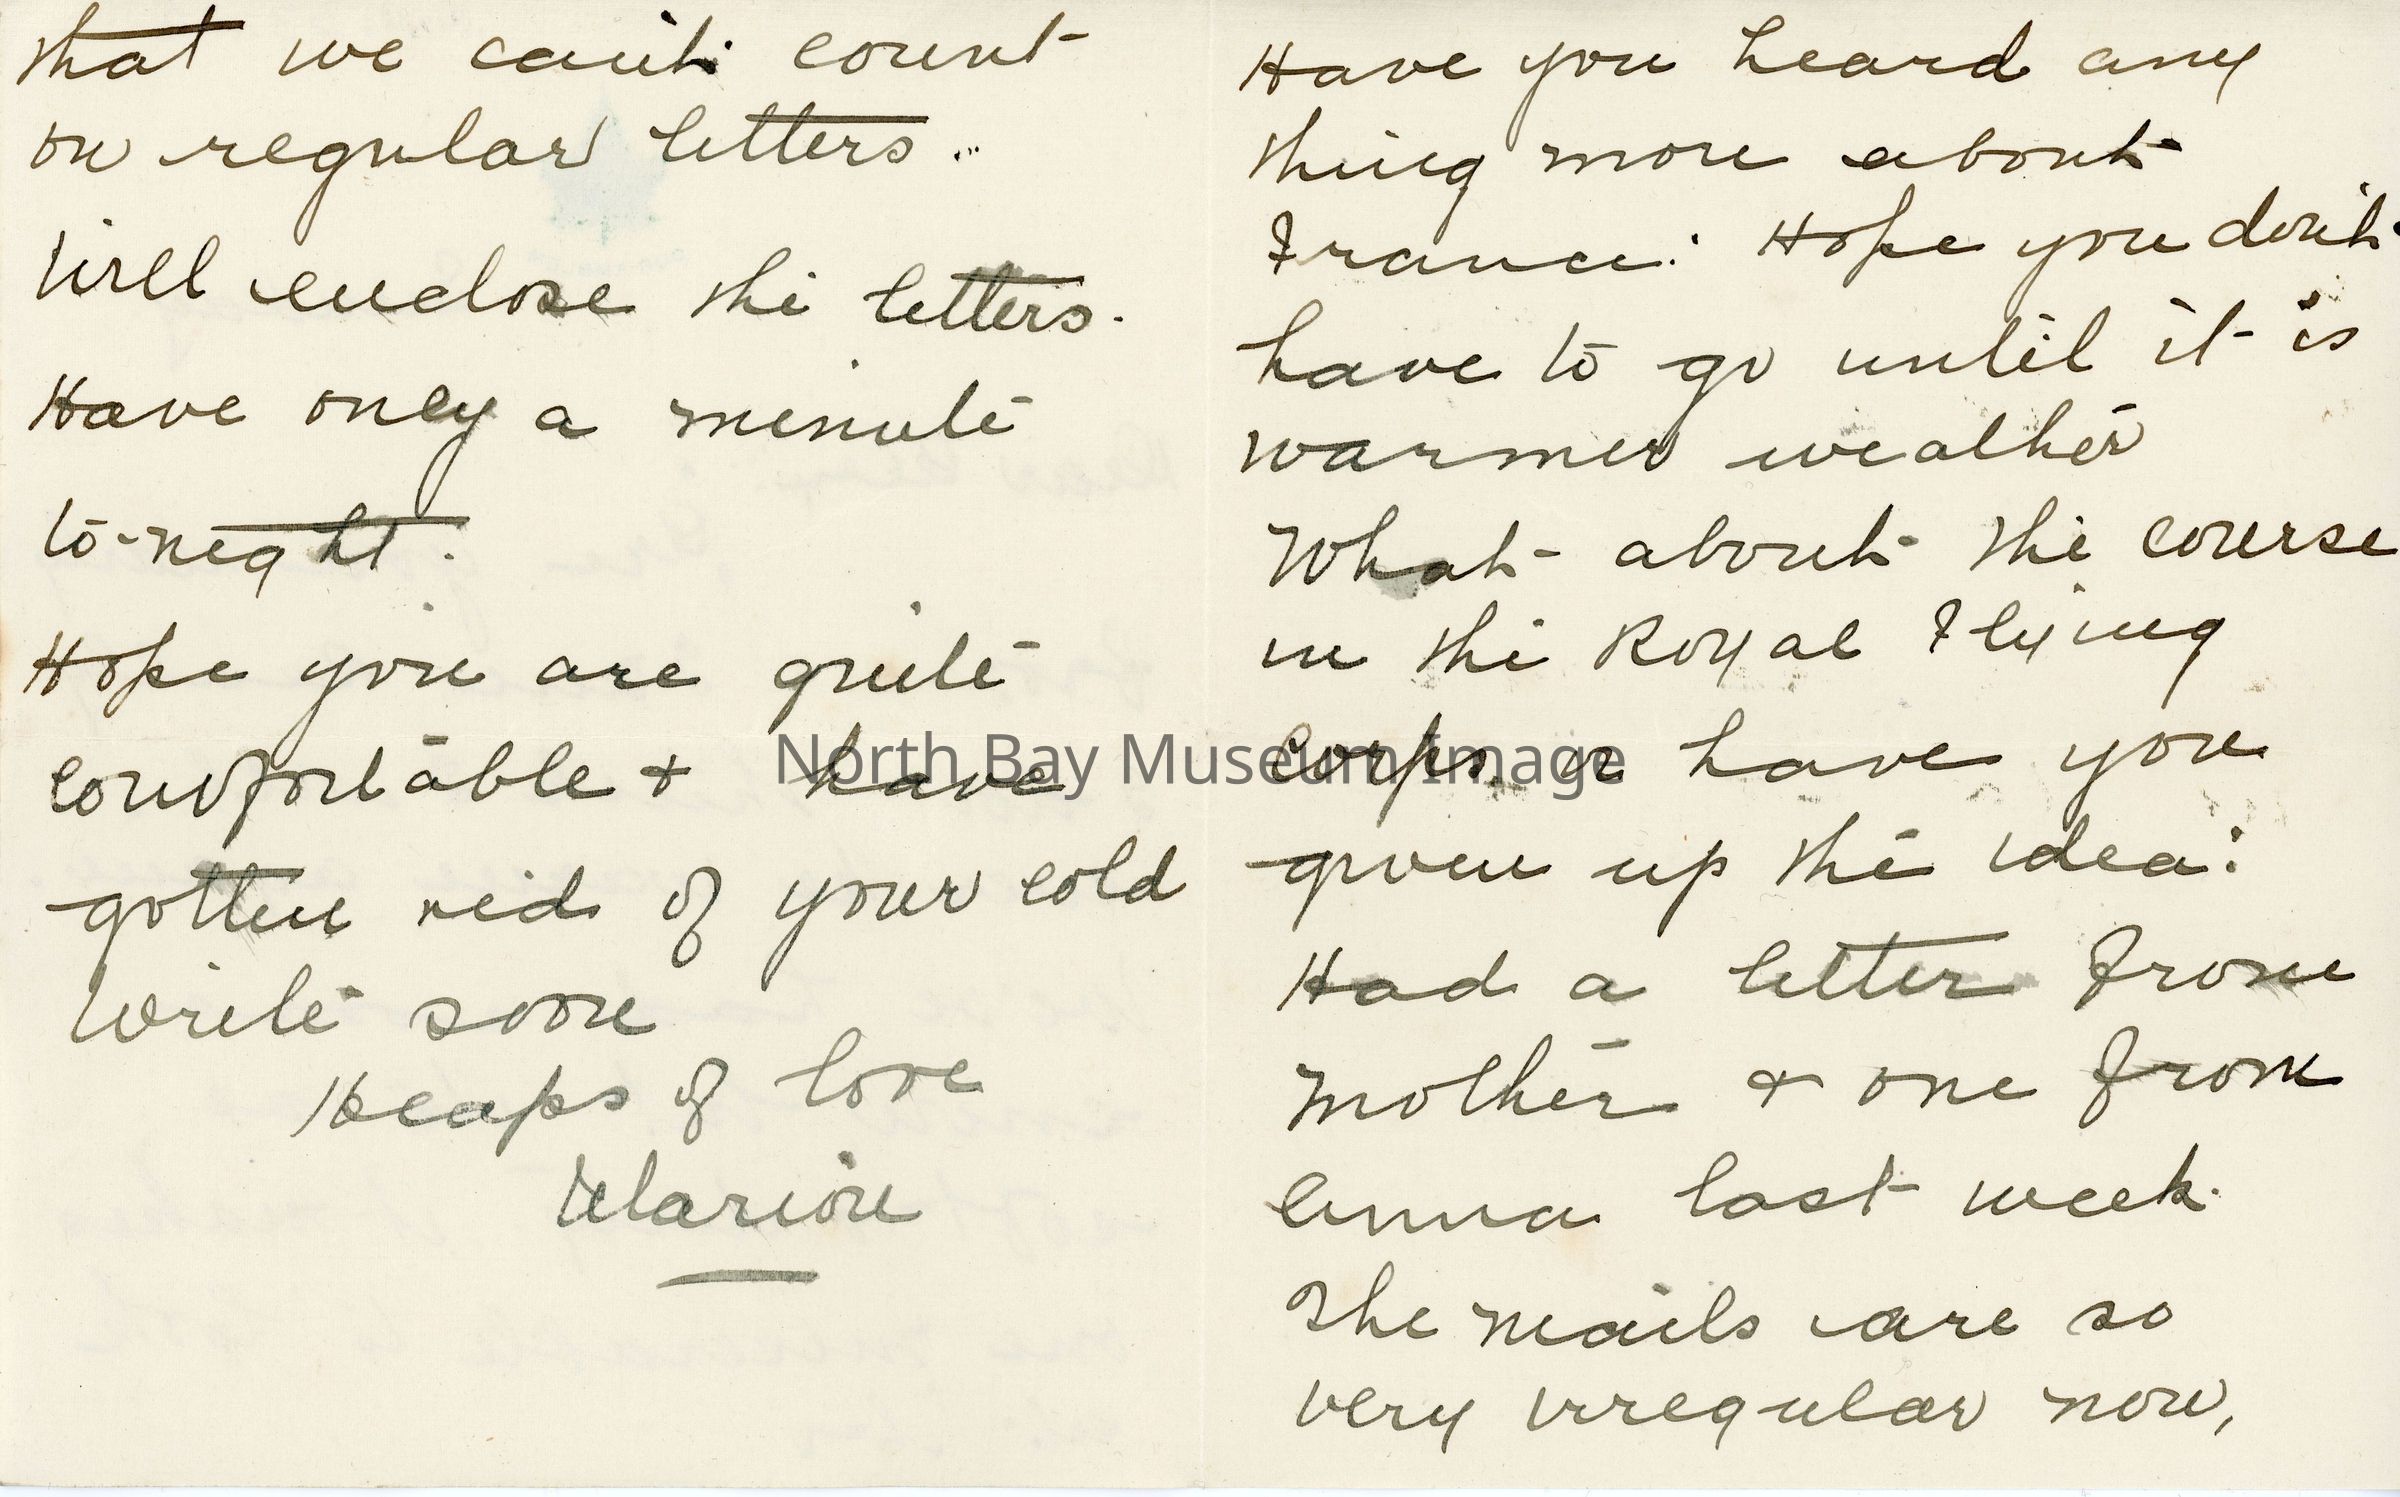 Have you heard any
thing more about
France. Hope you don't
have to go until it is
warmer weather
What about the course
in the Royal Flying
Corps or have you
given up the idea.
Had a letter from
Mother & one from
Anna last week.
The mails are so
very irregular now,
that we can't count
on regular letters.
Will enclose the letters.
Have only a minute
to-night.
Hope you are quite
comfortable & have
gotten rid of your cold
Write soon
Heaps of love
Marion
North Bay Museum Image